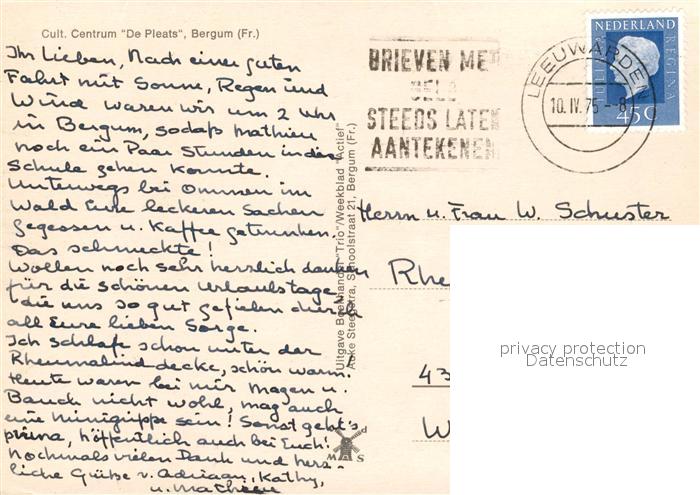 Cult. Centrum "De Pleats", Bergum (Fr.)
Ihr Lieben, Nach einer guten
Fahrt mit Sonne, Regen und
Wind waren wir um 2 Uhr
in Bergum, sodaß Mathieu
noch ein Paar Stunden in die
Schule gehen konnte.
Unterwegs bei Ommen im
Wald Eure leckeren Sachen
gegessen u. Kaffee getrunken.
Das schmeckte!
Wollen noch sehr herzlich danken
für die schönen Urlaubstage
die uns so gut gefielen durch
all Eure lieben Sorge.
Ich schlafe schon unter der
Rheumalind decke, schön warm!
Heute waren bei mir Magen u.
Bauch nicht wohl, mag auch
eine minigrippe sein! Sonst geht's
prima, höffentlich auch bei Euch!
Nochmals vielen Dank und herz-
liche Grüße v. Adriaan, Kathy,
u. Mathieu
Uitgave Boekhandel "Trio"/Weekblad "Actief"
Auke Steenstra, Schoolstraat 21, Bergum (Fr.)
M S
BRIEVEN MET
GELD
STEEDS LATEN
AANTEKENEN
LEEUWARDEN
10.IV.75-8
NEDERLAND
JULIANA REGINA
45C
Herrn u. Frau W. Schuster
Rhe
43
W
privacy protection
Datenschutz